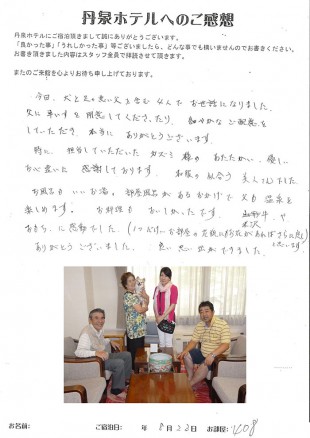 丹泉ホテルへのご感想
丹泉ホテルにご宿泊頂きまして誠にありがとうございます。
「良かった事」「うれしかった事」等ございましたら、どんな事でも構いませんのでお書きください。
お書き頂きました内容はスタッフ全員で拝読させて頂きます。
またのご来館を心よりお待ち申し上げております。
今回、犬と足の悪い父を含む4人でお世話になりました。
父に車いすを用意してくださったり、細やかなご配慮を
していただき 本当に ありがとうございます。
特に 担当していただいた カズミ 様の あたたかい、優しい
お心遣いに 感謝しております。 和服の似合う 美人さんでした
お風呂も いいお湯。 部屋風呂が あるおかげで 父も 温泉を
楽しめます。 お料理も おいしかったです。
ありがとう ございました。 良い 思い出ができました。
お名前: ご宿泊日: 年 8月23日 お部屋: 408